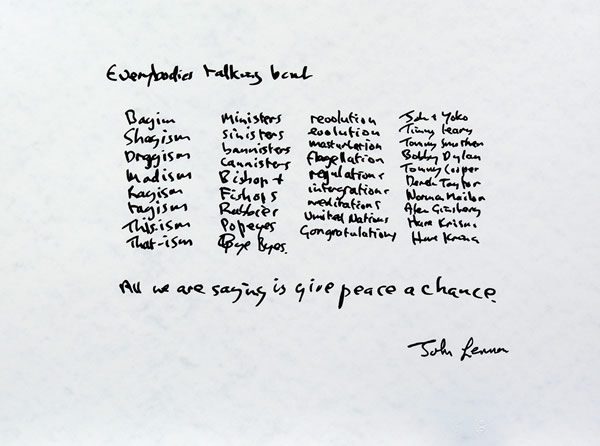 Everybodies talking bout
Bagism
Shagism
Dragism
Madism
Ragism
tagism
This.ism
That-ism
Ministers
sinisters
bannisters
cannisters
Bishop +
Fishops
Rabbies
Popeyes
Bye Byes.
revolution
evolution
masturbation
flagellation
regulations
integrations
meditations
United Nations
Congratulations
John + Yoko
Timmy Leary
Tommy Smothers
Bobby Dylan
Tommy Cooper
Derek Taylor
Norman Mailer
Alen Ginsberg
Hare Krisna
Hare Krisna
All we are saying is give peace a chance.
John Lennon